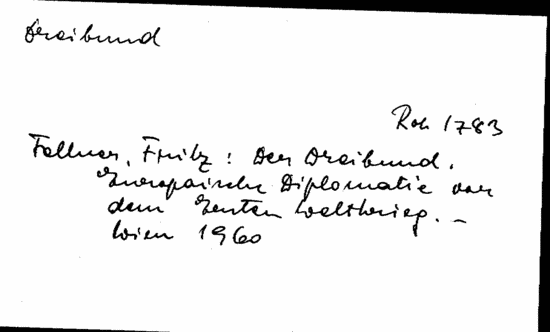 Dreibund
Rok 1783
Fellner, Fritz: Der Dreibund.
Europäische Diplomatie vor
dem Ersten Weltkrieg. –
Wien 1960